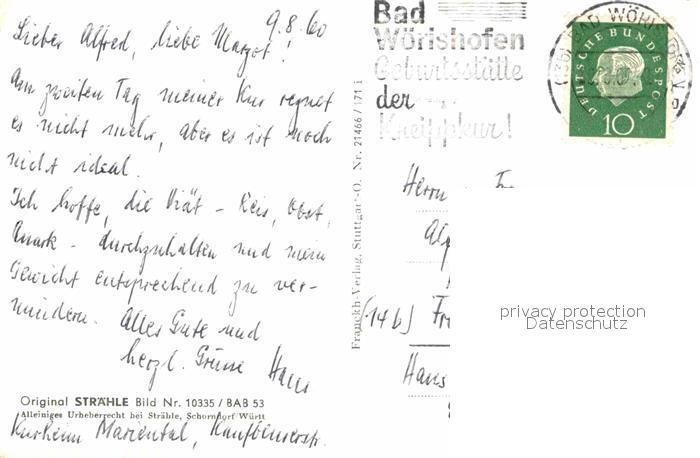 9.8.60
Lieber Alfred, liebe Margot!
Am zweiten Tag meiner Kur regnet
es nicht mehr, aber es ist noch
nicht ideal.
Ich hoffe, die Diät - Reis, Obst,
Quark - durchzuhalten und mein
Gewicht entsprechend zu ver-
mindern. Alles Gute und
herzl. Grüsse Hans
Original STRÄHLE Bild Nr. 10335 / BAB 53
Alleiniges Urheberrecht bei Strähle, Schorndorf Württ
Kurheim Mariental, Kaufbeurerstr.
Franckh-Verlag, Stuttgart-O. Nr. 21466/171 i
Bad
Wörishofen
Geburtsstätte
der
Kneippkur!
BAD WÖRISHOFEN
DEUTSCHE BUNDESPOST
10
Herrn
(14b)
Hans
privacy protection
Datenschutz